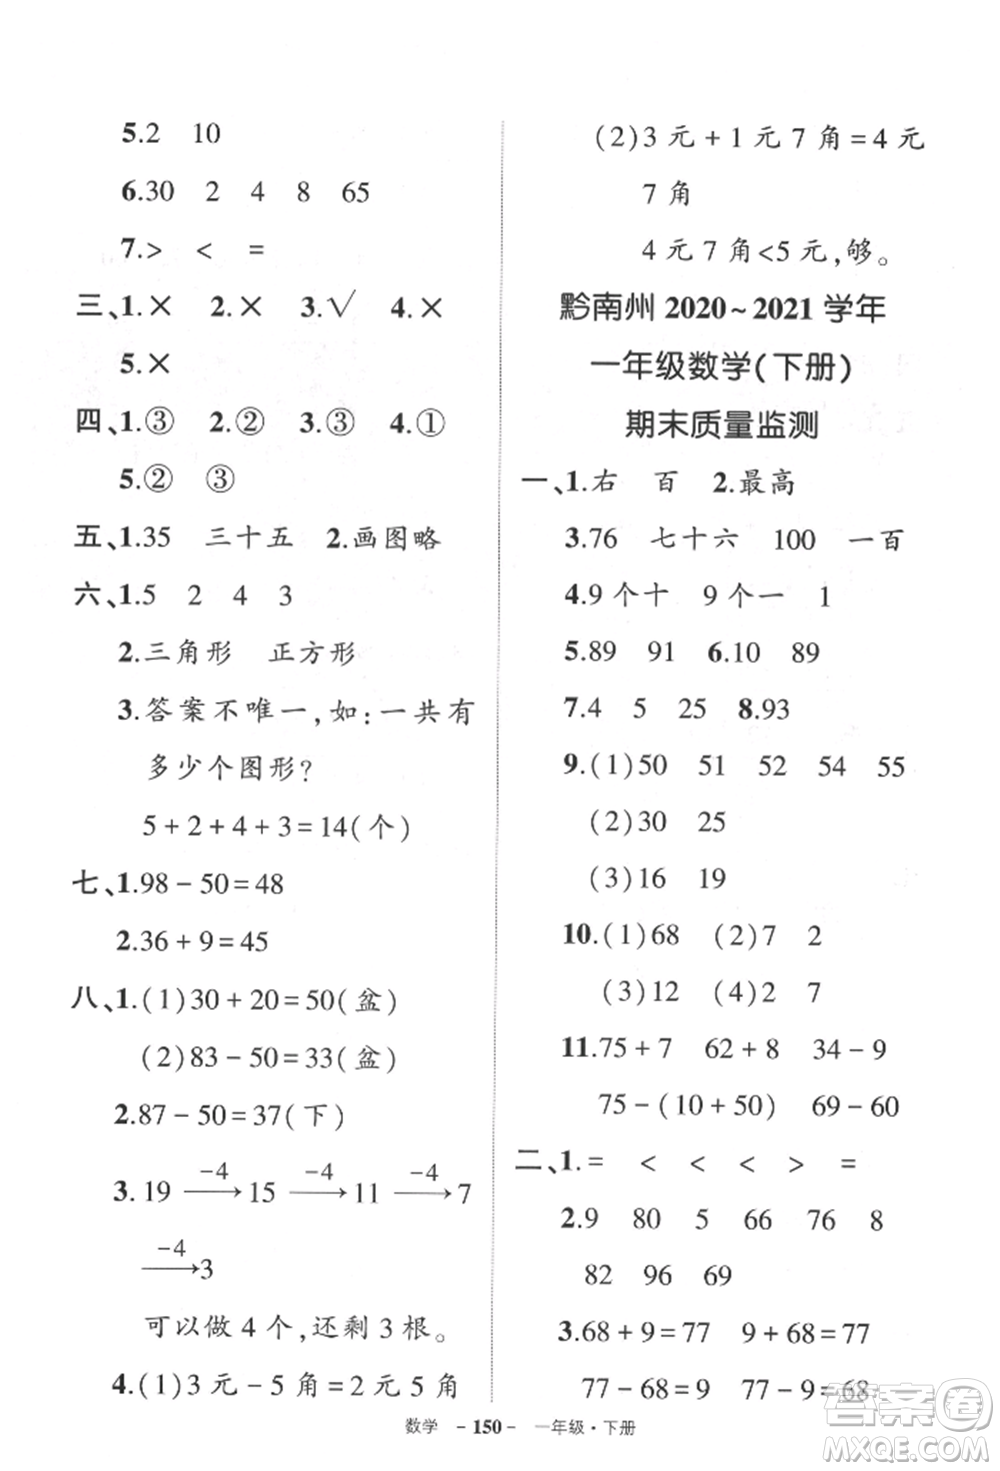 5.2 10
6.30 2 4 8 65
7.> < =
三、1.× 2.× 3.√ 4.×
5.×
四、1.③ 2.② 3.③ 4.①
5.② ③
五、1.35 三十五 2.画图略
六、1.5 2 4 3
2.三角形 正方形
3.答案不唯一,如:一共有
多少个图形?
5+2+4+3=14(个)
七、1.98-50=48
2.36+9=45
八、1.(1)30+20=50(盆)
(2)83-50=33(盆)
2.87-50=37(下)
3. 19 -4→ 15 -4→ 11 -4→ 7
-4→ 3
可以做4个,还剩3根。
4.(1)3元-5角=2元5角
(2)3元+1元7角=4元
7角
4元7角<5元,够。
黔南州2020~2021学年
一年级数学(下册)
期末质量监测
一、1.右 百 2.最高
3.76 七十六 100 一百
4.9个十 9个一 1
5.89 91 6.10 89
7.4 5 25 8.93
9.(1)50 51 52 54 55
(2)30 25
(3)16 19
10.(1)68 (2)7 2
(3)12 (4)2 7
11.75+7 62+8 34-9
75-(10+50) 69-60
二、1.= < < < > =
2.9 80 5 66 76 8
82 96 69
3.68+9=77 9+68=77
77-68=9 77-9=68
数学 -150- 一年级·下册
答案圈
MXQE.COM